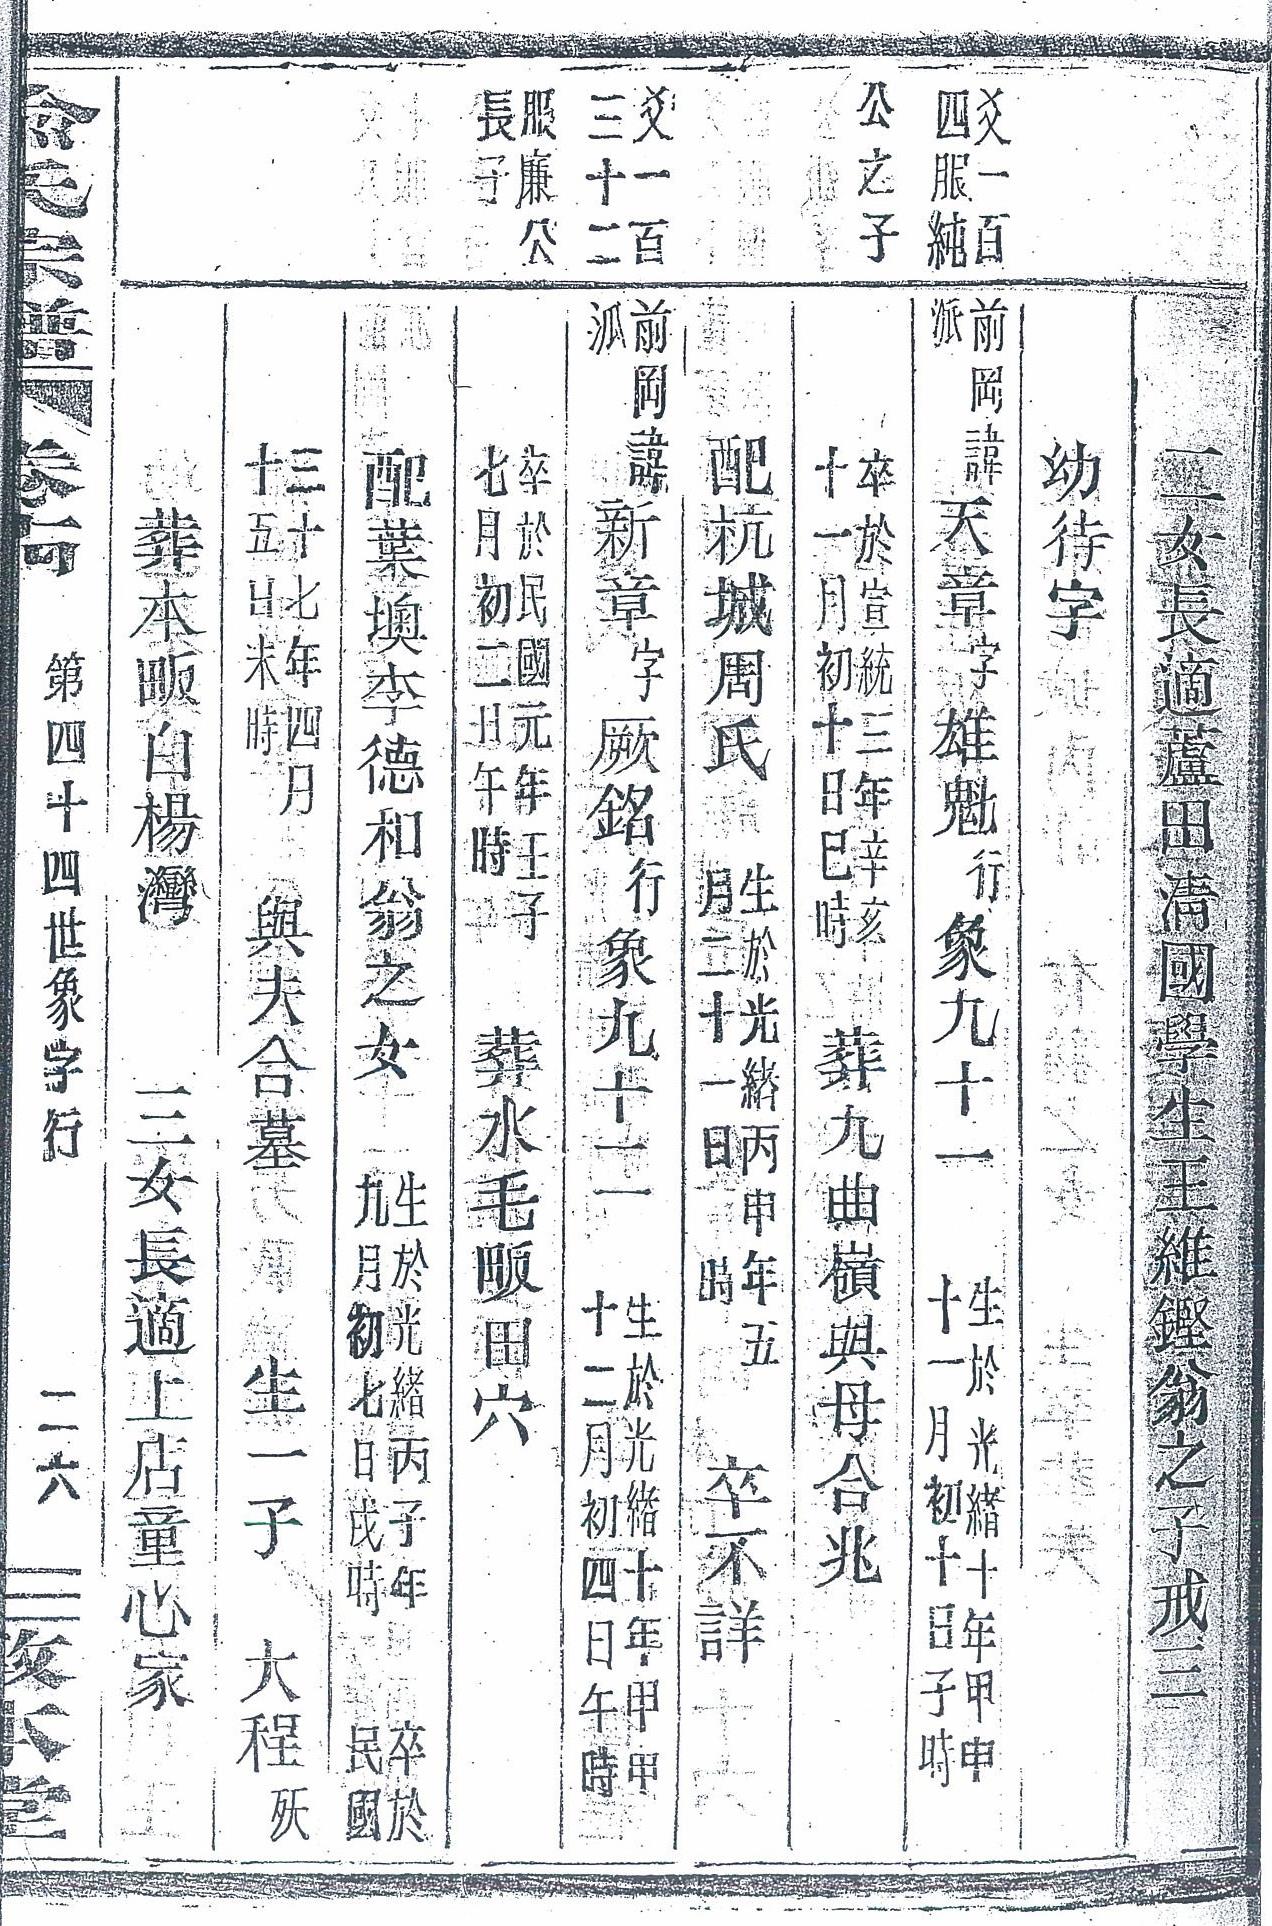 二女長適蘆田淸國學生王維鏗翁之子戒三
幼待字
爻一百
四服純
前岡諱
派
天章字雄魁行象九十一
生於光緖十年甲申
十一月初十日子時
公之子
卒於宣統三年辛亥
十一月初十日巳時
葬九曲嶺與母合兆
配杭城周氏
生於光緖丙申年五
月二十一日 時
卒不詳
爻一百
三十二
前岡諱
派
新章字厥銘行象九十二
生於光緖十年甲申
十二月初四日午時
服廉公
長子
卒於民國元年壬子
七月初二日午時
葬水毛畈田穴
配葉墺李德和翁之女
生於光緖丙子年
九月初七日戌時
卒於
民國
三十七年四月
十五日未時
與夫合墓
生一子
大程
殀
葬本畈白楊灣
三女長適上店童心家
俞氏宗譜
卷一
第四十四世象字行
二六
敦本堂